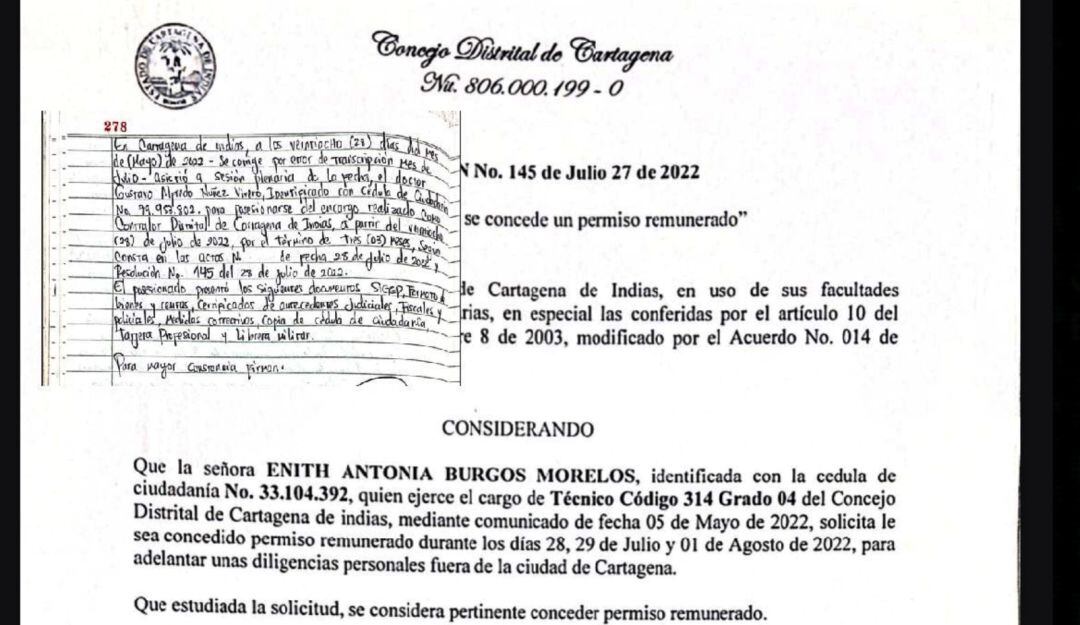 Concejo Distrital de Cartagena
Nit. 806.000.199 - 0
278
En Cartagena de indias, a los veintiocho (28) días del mes
de (Mayo) de 2022 - Se corrige por error de transcripción mes de
Julio - Asistió a sesión Plenaria de la fecha, el doctor
Gustavo Alfredo Núñez Vivero, Identificado con Cédula de Ciudadanía
No. 73.957.802, para posesionarse del encargo realizado como
Contralor Distrital de Cartagena de Indias, a partir del veintiocho
(28) de julio de 2022, por el término de Tres (03) meses, Según
Consta en las actas N° de fecha 28 de julio de 2022 y
Resolución No. 145 del 28 de julio de 2022.
El posesionado presentó los siguientes documentos SIGEP, Formato
bienes y rentas, Certificados de antecedentes Judiciales, Fiscales y
policiales, medidas correctivas, Copia de cédula de ciudadanía
Tarjeta Profesional y Libreta militar.
Para mayor constancia firman.
N No. 145 de Julio 27 de 2022
se concede un permiso remunerado”
de Cartagena de Indias, en uso de sus facultades
rias, en especial las conferidas por el artículo 10 del
re 8 de 2003, modificado por el Acuerdo No. 014 de
CONSIDERANDO
Que la señora ENITH ANTONIA BURGOS MORELOS, identificada con la cedula de
ciudadanía No. 33.104.392, quien ejerce el cargo de Técnico Código 314 Grado 04 del Concejo
Distrital de Cartagena de indias, mediante comunicado de fecha 05 de Mayo de 2022, solicita le
sea concedido permiso remunerado durante los días 28, 29 de Julio y 01 de Agosto de 2022, para
adelantar unas diligencias personales fuera de la ciudad de Cartagena.
Que estudiada la solicitud, se considera pertinente conceder permiso remunerado.